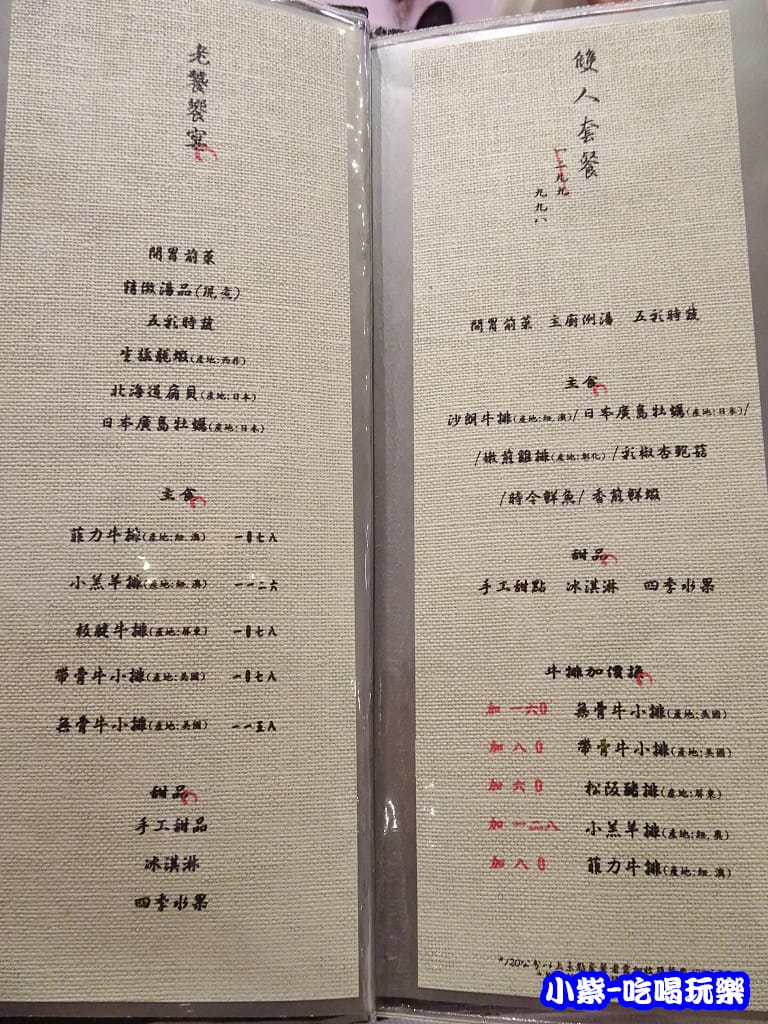 老饕饗宴
開胃前菜
精緻湯品(現煮)
五彩時蔬
生猛龍蝦(產地:西非)
北海道扇貝(產地:日本)
日本廣島牡蠣(產地:日本)
主食
菲力牛排(產地:紐.澳) 一0七八
小羔羊排(產地:紐.澳) 一一二六
板腱牛排(產地:屏東) 一0七八
帶骨牛小排(產地:美國) 一0七八
無骨牛小排(產地:美國) 一一五八
甜品
手工甜品
冰淇淋
四季水果
雙人套餐
一二九九
九九八
開胃前菜 主廚例湯 五彩時蔬
主食
沙朗牛排(產地:紐.澳)/日本廣島牡蠣(產地:日本)/
/嫩煎雞排(產地:彰化)/彩椒杏鮑菇
/時令鮮魚/香煎鮮蝦
甜品
手工甜點 冰淇淋 四季水果
牛排加價換
加 一六0 無骨牛小排(產地:美國)
加 八 0 帶骨牛小排(產地:美國)
加 六 0 松阪豬排(產地:屏東)
加 一二八 小羔羊排(產地:紐.奧)
加 八 0 菲力牛排(產地:紐.澳)
*120公分以上未點套餐者需加收
小紫-吃喝玩樂